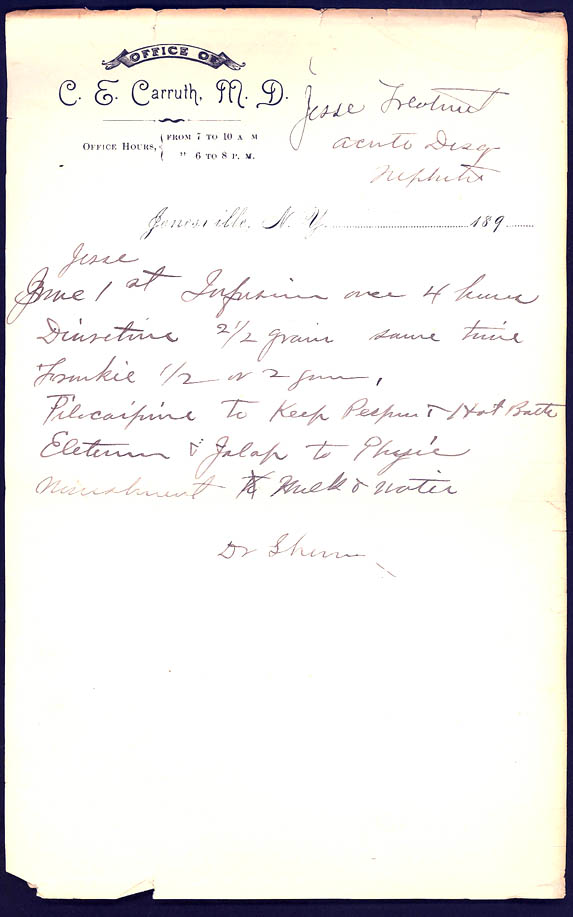 OFFICE OF
C. E. Carruth, M. D.
OFFICE HOURS, { FROM 7 TO 10 A M
" 6 TO 8 P. M.
Jesse Treatment
acute Desq
Nephritis
Jonesville, N. Y. 189
Jesse
1 st Infusion once 4 hours
Diuretine 2 1/2 grain same time
1/2 or 2 gm,
Pilocarpine to Keep Respin & Hot Bath
& Jalap to Physic
Nourishment Milk & water
Dr